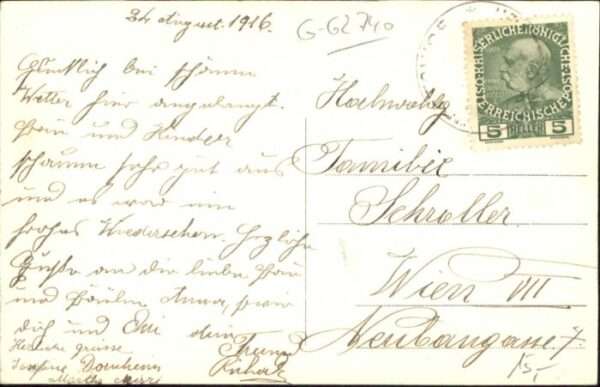 24 August 1916.
G-62740
Glücklich bei schönem
Wetter hier angelangt.
Frau und Kinder
schauen sehr gut aus
und es war ein
frohes Wiedersehen. Herzliche
Grüße an die liebe Frau
und Fräulein Anna, sowie
dich und
dein Freund
Herzliche Grüsse
Familie
Schroller.
Wien VII
Neubaugasse 7.
KAISERLICHE KÖNIGLICHE ÖSTERREICHISCHE
5 HELLER 5